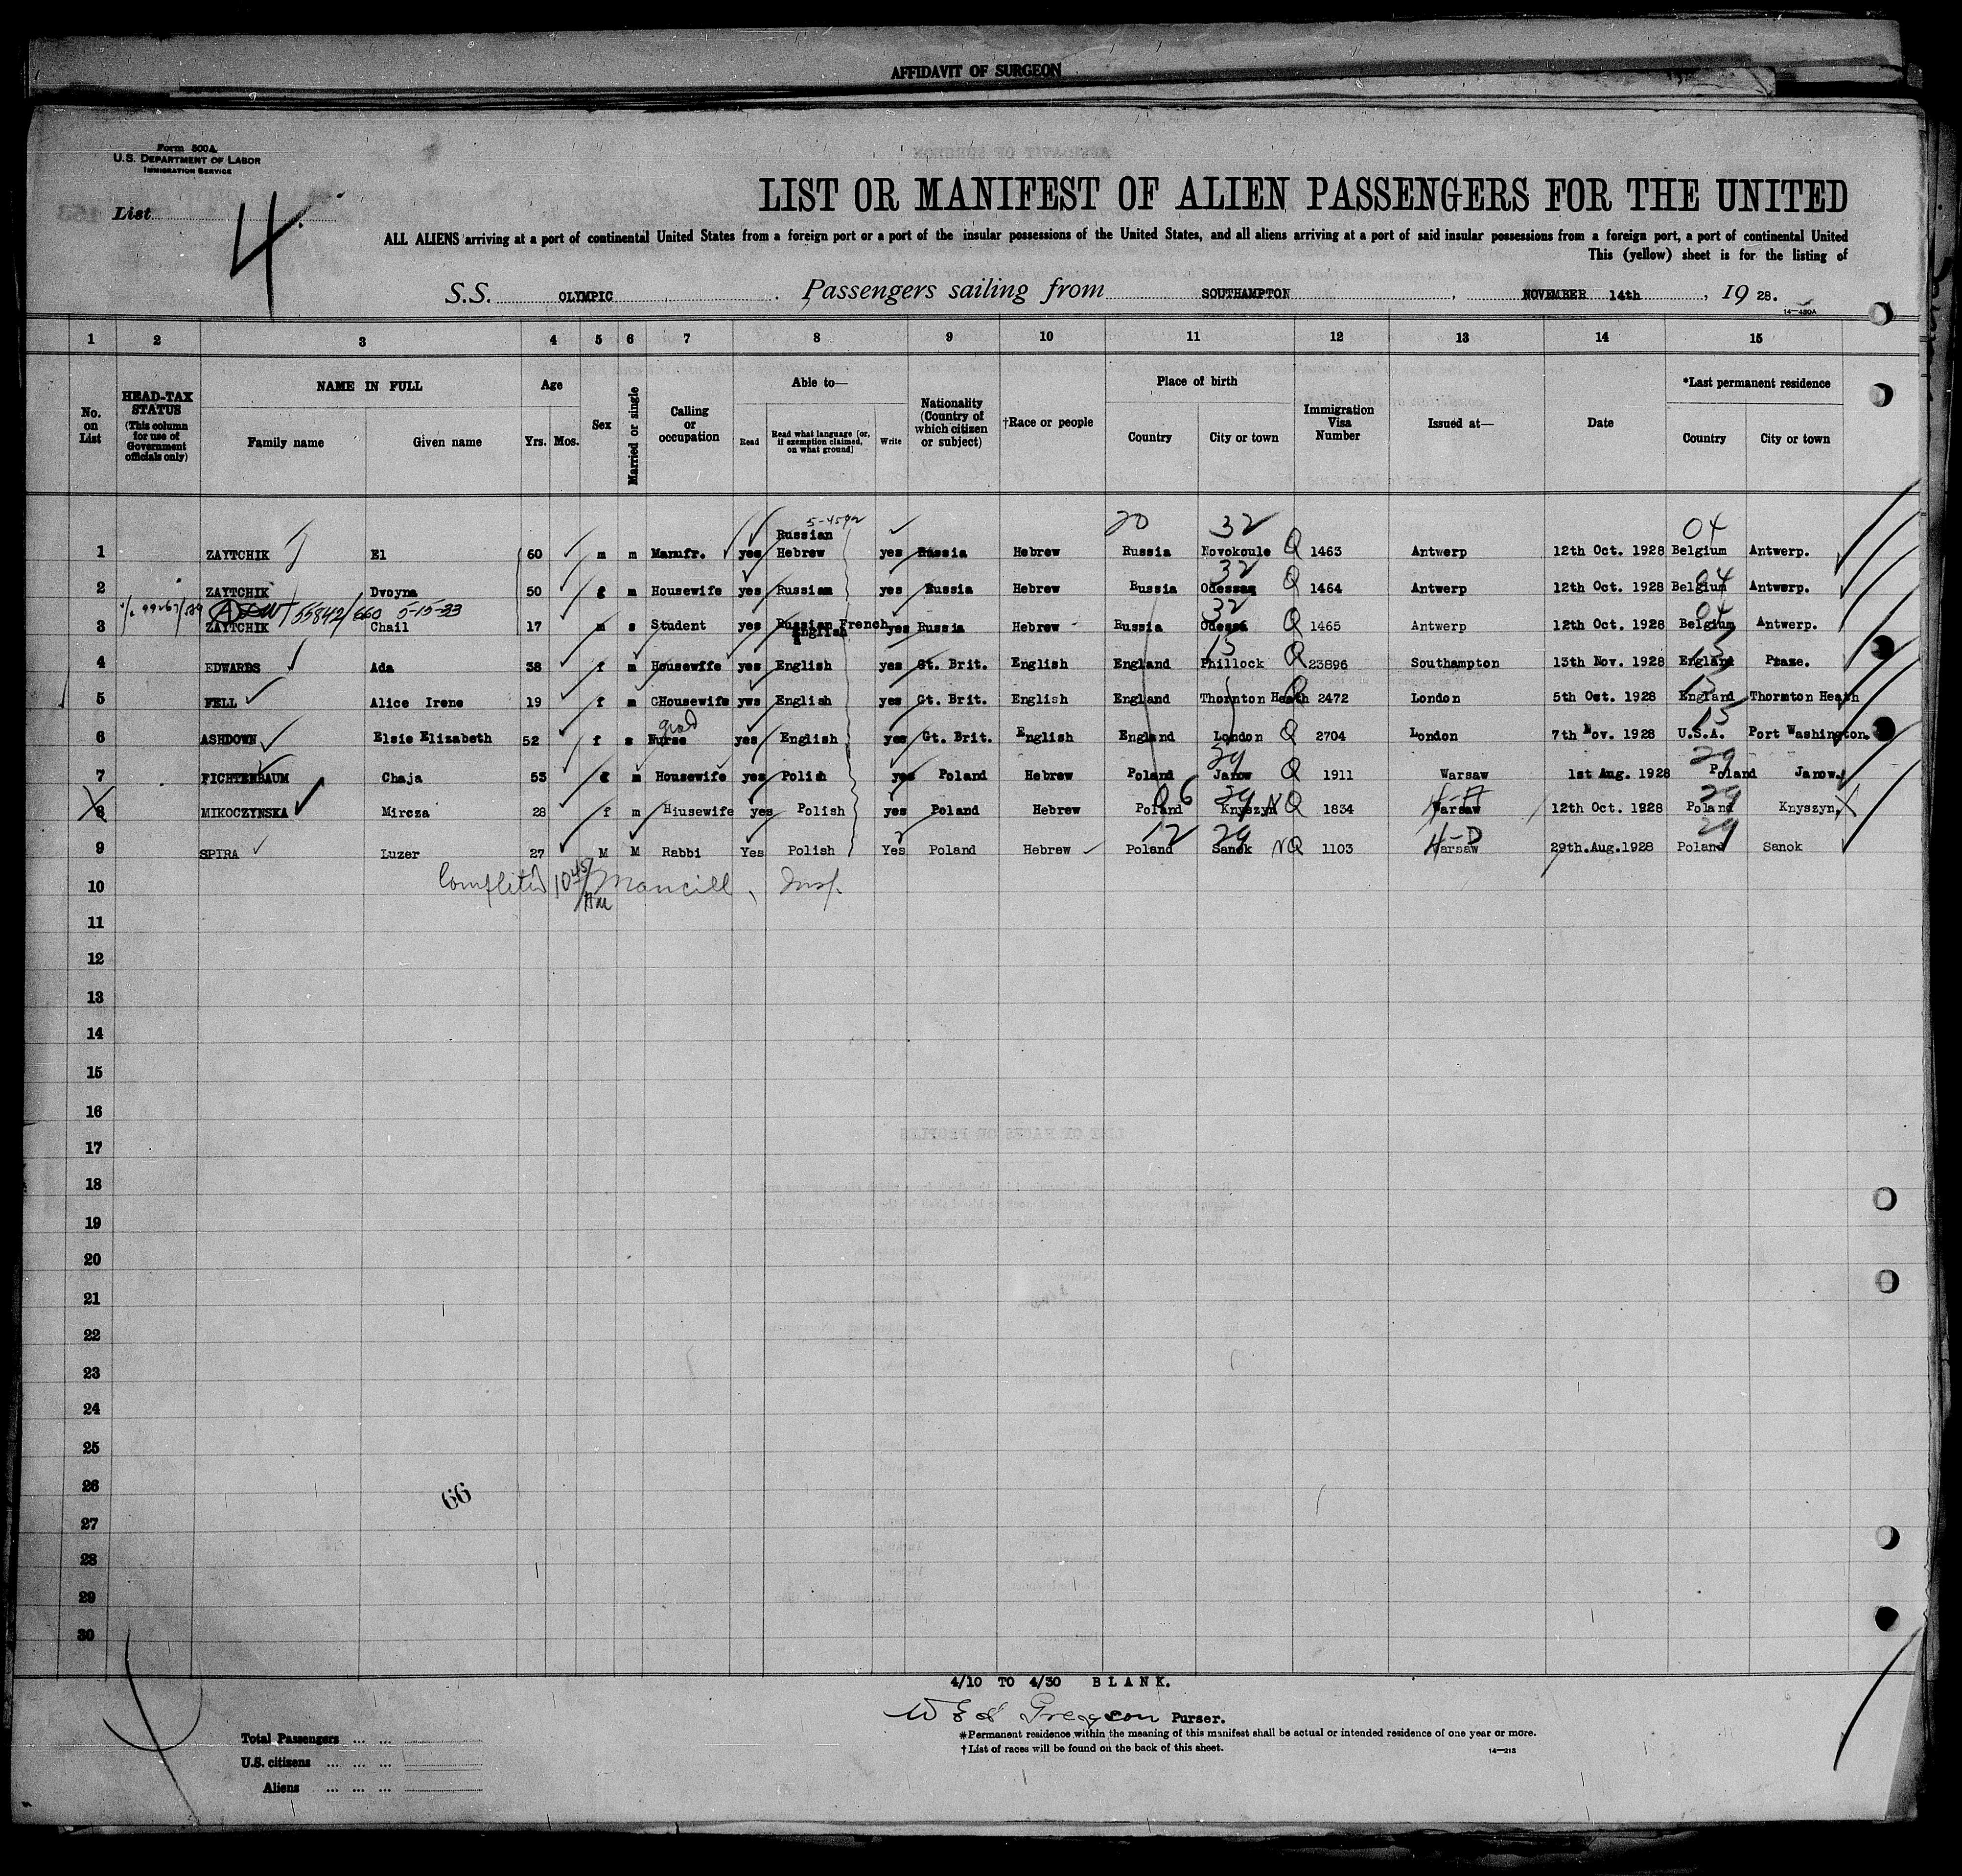 AFFIDAVIT OF SURGEON
Form 500A
U.S. DEPARTMENT OF LABOR
IMMIGRATION SERVICE
List 4.
LIST OR MANIFEST OF ALIEN PASSENGERS FOR THE UNITED
ALL ALIENS arriving at a port of continental United States from a foreign port or a port of the insular possessions of the United States, and all aliens arriving at a port of said insular possessions from a foreign port, a port of continental United
This (yellow) sheet is for the listing of
S.S. OLYMPIC . Passengers sailing from SOUTHAMPTON , NOVEMBER 14th , 19 28.
14—430A
1 2 3 4 5 6 7 8 9 10 11 12 13 14 15
No. on List
HEAD-TAX STATUS (This column for use of Government officials only)
NAME IN FULL
Family name Given name
Age
Yrs. Mos.
Sex
Married or single
Calling or occupation
Able to—
Read Read what language [or, if exemption claimed, on what ground] Write
Nationality (Country of which citizen or subject)
†Race or people
Place of birth
Country City or town
Immigration Visa Number
Issued at—
Date
*Last permanent residence
Country City or town
20 32 04
1 ZAYTCHIK El 60 m m Manufr. yes Russian Hebrew yes Russia Hebrew Russia Novokoule Q 1463 Antwerp 12th Oct. 1928 Belgium Antwerp.
32 04
2 ZAYTCHIK Dvoyna 50 f m Housewife yes Russian yes Russia Hebrew Russia Odessa Q 1464 Antwerp 12th Oct. 1928 Belgium Antwerp.
55842/660 5-15-33 32 04
3 ZAYTCHIK Chail 17 m s Student yes Russian French English yes Russia Hebrew Russia Odessa Q 1465 Antwerp 12th Oct. 1928 Belgium Antwerp.
15 15
4 EDWARDS Ada 38 f m Housewffe yes English yes Gt. Brit. English England Phillock Q 23896 Southampton 13th Nov. 1928 England Praze.
15
5 FELL Alice Irene 19 f m CHousewife yws English yes Gt. Brit. English England Thornton Heath Q 2472 London 5th Oct. 1928 England Thornton Heath
grad 15
6 ASHDOWN Elsie Elizabeth 52 f s Nurse yes English yes Gt. Brit. English England London Q 2704 London 7th Nov. 1928 U.S.A. Port Washington.
29 29
7 FICHTENBAUM Chaja 53 f m Housewife yes Polish yes Poland Hebrew Poland Janow Q 1911 Warsaw 1st Aug. 1928 Poland Janow.
06 29 29
8 MIKOCZYNSKA Mircza 28 f m Hiusewife yes Polish yes Poland Hebrew Poland Knyszyn NQ 1834 Warsaw 12th Oct. 1928 Poland Knyszyn,
12 29 4-D 29
9 SPIRA Luzer 27 M M Rabbi Yes Polish Yes Poland Hebrew Poland Sanok NQ 1103 Warsaw 29th.Aug.1928 Poland Sanok
10 Completed 10 45 AM Mancill, Insp.
11
12
13
14
15
16
17
18
19
20
21
22
23
24
25
26
66
27
28
29
30
4/10 TO 4/30 BLANK.
Purser.
Total Passengers
U.S. citizens
Aliens
*Permanent residence within the meaning of this manifest shall be actual or intended residence of one year or more.
†List of races will be found on the back of this sheet.
14—213